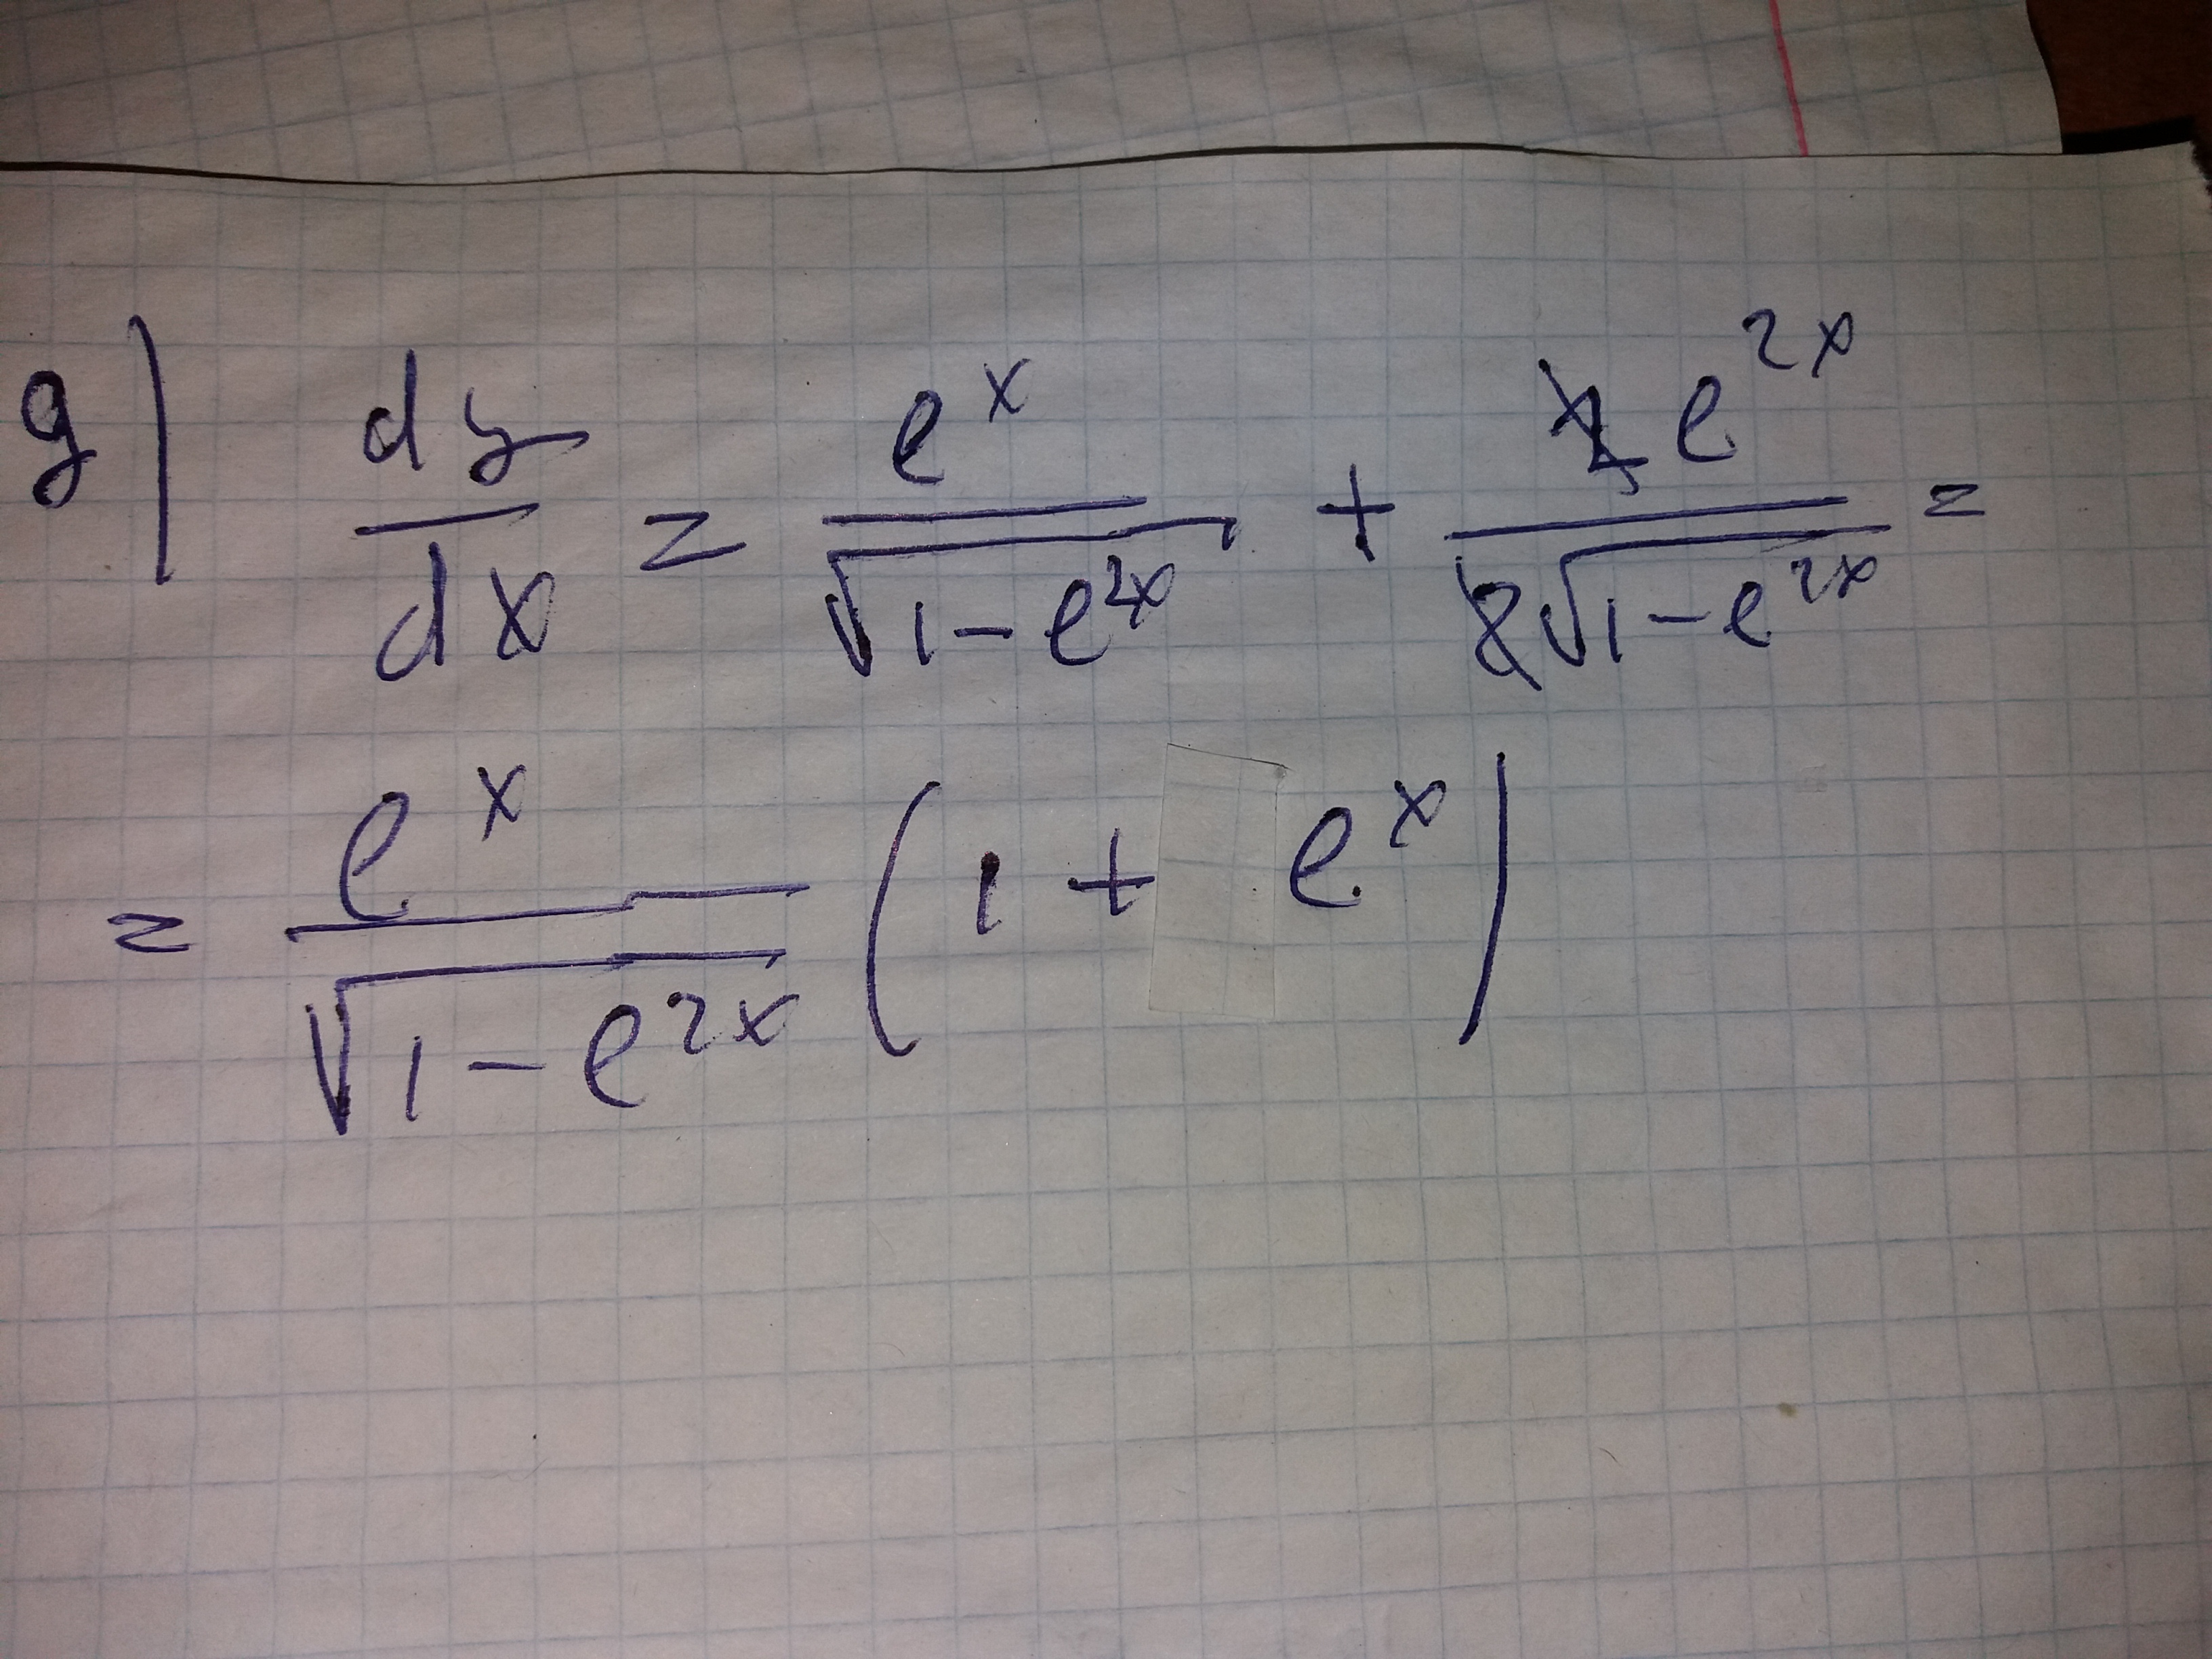 g) dy/dx = e^x/√(1-e^2x) + 2e^2x/2√(1-e^2x) =
= e^x/√(1-e^2x) (1 + e^x)